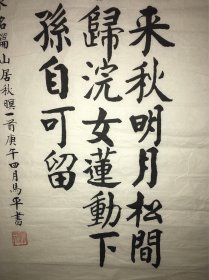 来秋明月松間
歸浣女蓮動下
孫自可留
名篇山居秋暝一首庚午四月馬平書